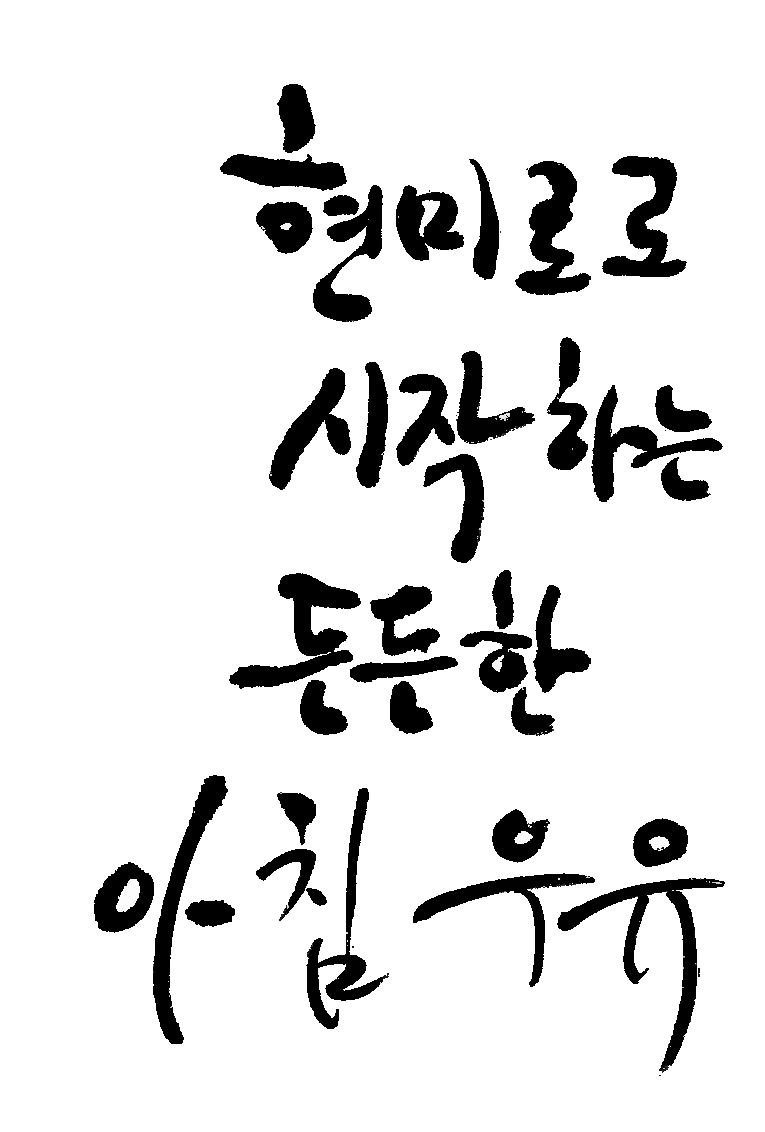 현미로로
시작하는
든든한
아침 우유